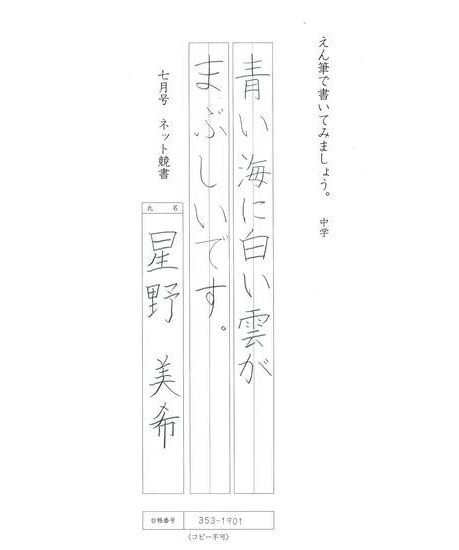 えん筆で書いてみましょう。 中学
青い海に白い雲が
まぶしいです。
七月号 ネット競書
氏 名
星野 美希
台帳番号 353-1901
(コピー不可)